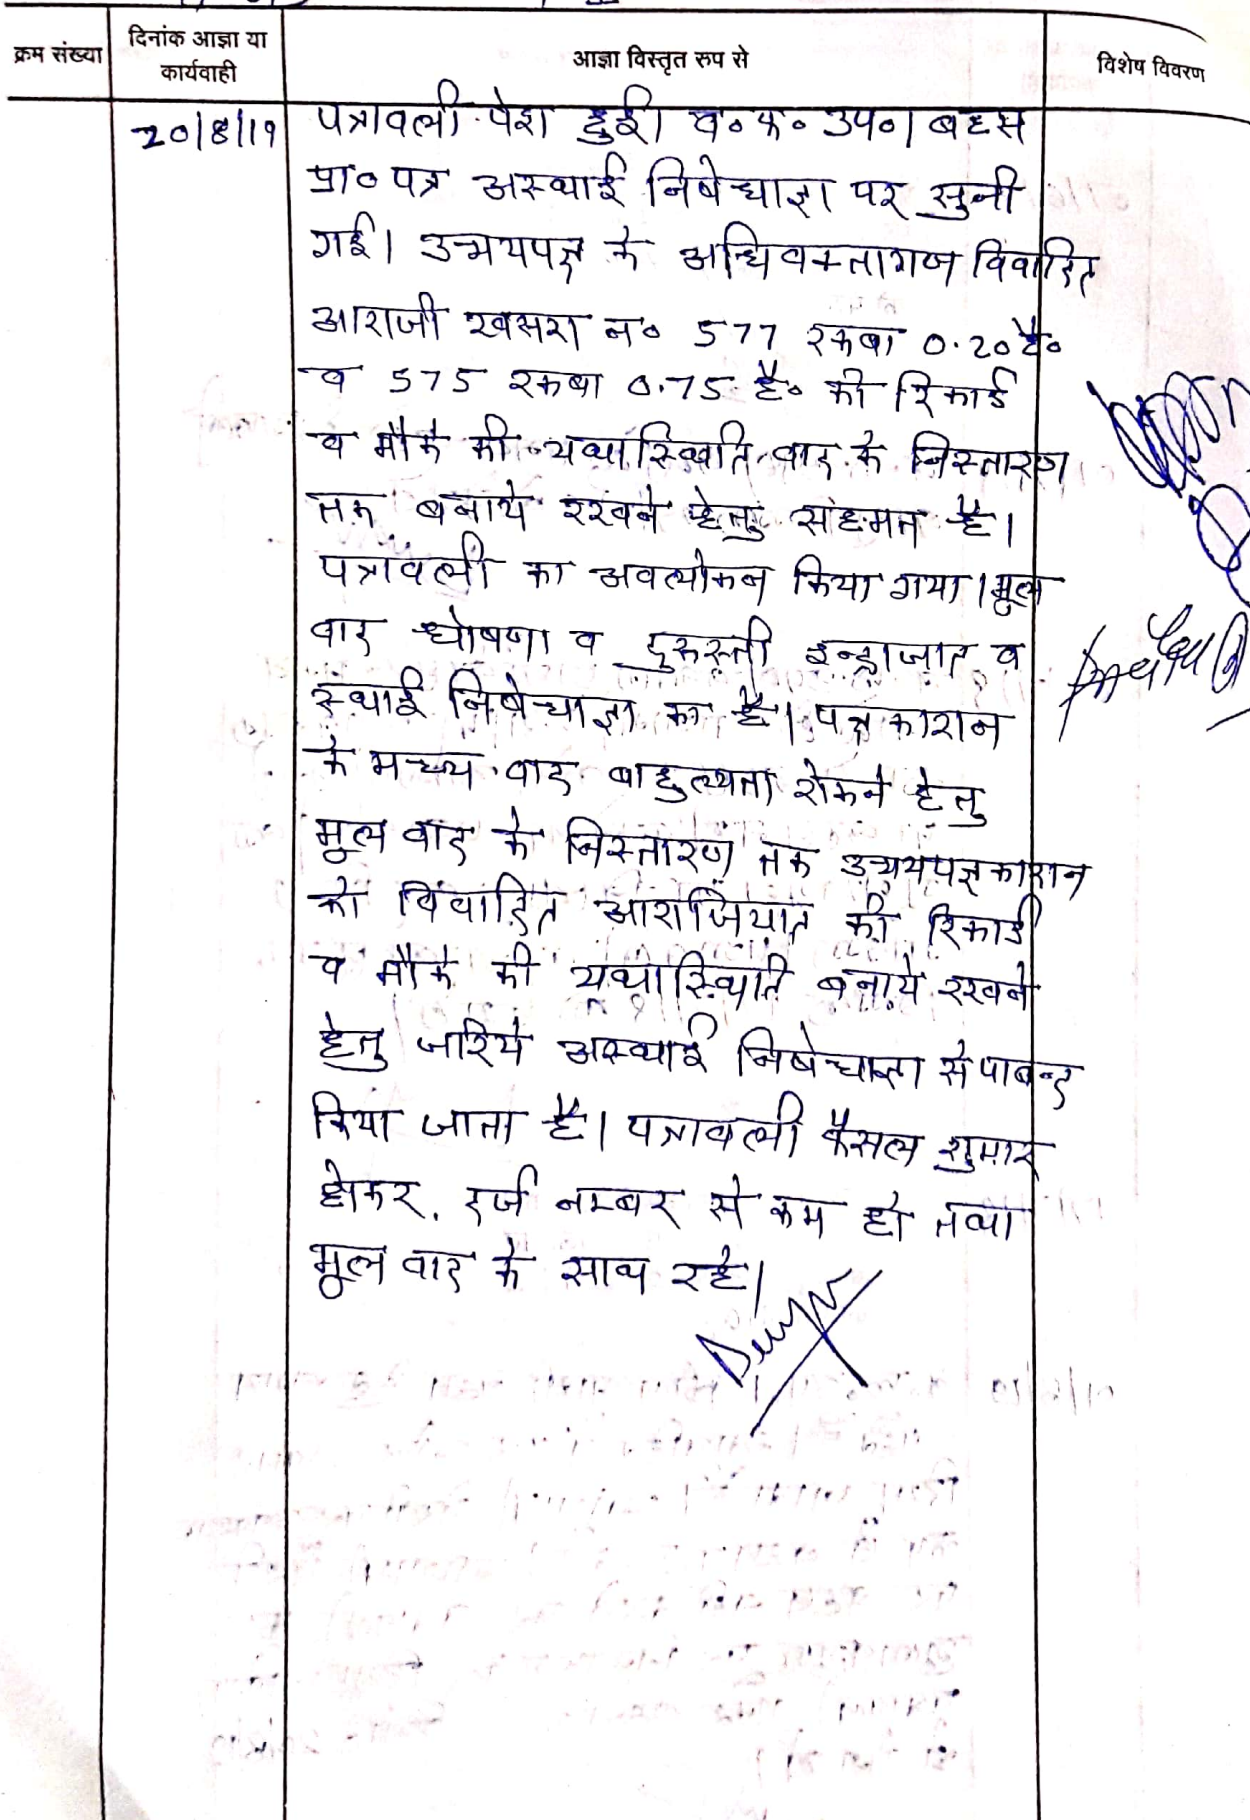 क्रम संख्या
दिनांक आज्ञा या कार्यवाही
आज्ञा विस्तृत रुप से
विशेष विवरण
20/8/19
पत्रावली पेश हुई। व०फ० उप०। बहस
प्रा० पत्र अस्थाई निषेधाज्ञा पर सुनी
गई। उभयपक्ष के अधिवक्तागण विवादित
आराजी खसरा न० 577 रकबा 0.20 है०
व 575 रकबा 0.75 है० की रिकार्ड
व मौके की यथास्थिति वाद के निस्तारण
तक बनाये रखने हेतु सहमत है।
पत्रावली का अवलोकन किया गया। मूल
वाद घोषणा व दुरुस्ती इन्द्राजात व
स्थाई निषेधाज्ञा का है। पक्षकारान
के मध्य वाद बाहुल्यता रोकने हेतु
मूल वाद के निस्तारण तक उभयपक्षकारान
को विवादित आराजियात की रिकार्ड
व मौके की यथास्थिति बनाये रखने
हेतु जरिये अस्थाई निषेधाज्ञा से पाबन्द
किया जाता है। पत्रावली फैसल शुमार
होकर, दर्ज नम्बर से कम हो तथा
मूल वाद के साथ रहे।